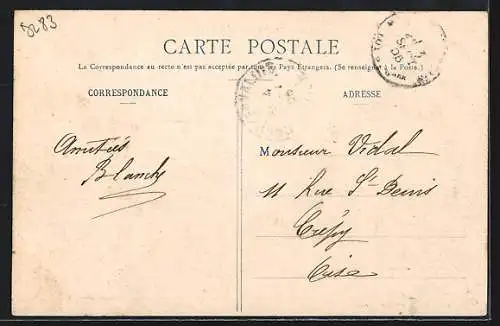 5283
CARTE POSTALE
La Correspondance au recto n'est pas acceptée par tous les Pays Etrangers. (Se renseigner à la Poste.)
CORRESPONDANCE
ADRESSE
Amitiés
Blanche
Monsieur Vidal
11 Rue St Denis
Crépy
Oise